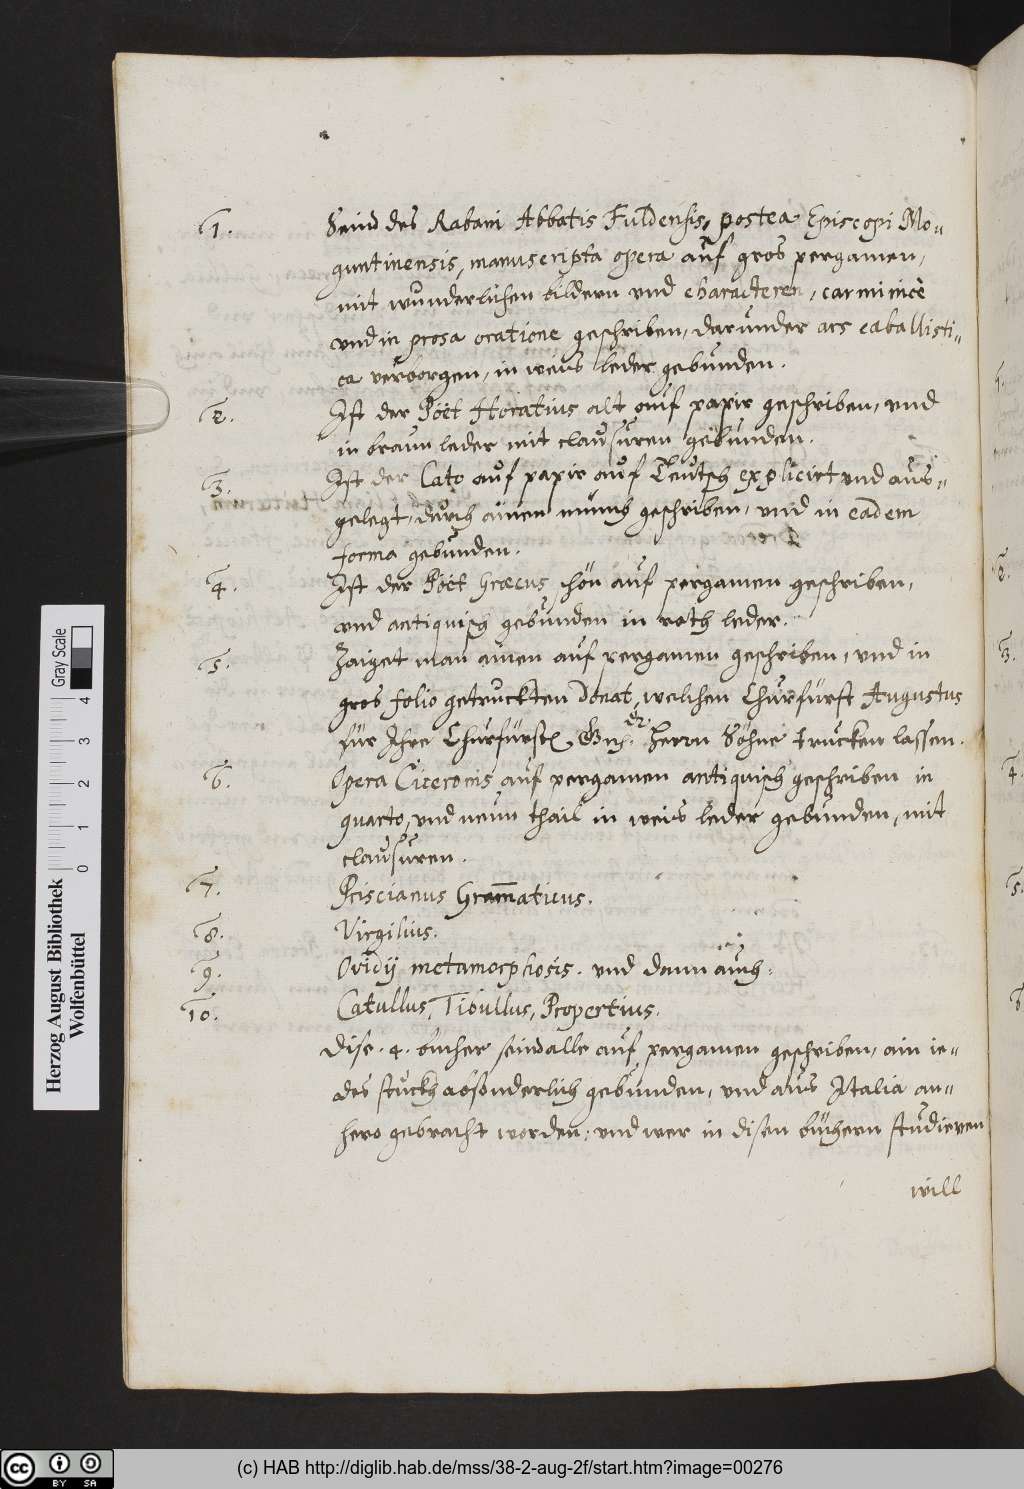 1. Seind des Rabani Abbatis Fuldensis, postea Episcopi Mo„
guntinensis, manuscripta opera auf gros pergamen,
mit wunderlichen bildern und characteren, carminicè
und in prosa oratione geschriben, darunder ars caballisti„
ca verborgen, in weis leder gebunden.
2. Ist der Pöet Horatius alt auf papir geschriben, und
in braun leder mit clausuren gebunden.
3. Ist der Cato auf papir auf Teutsch explicirt und aus„
gelegt, durch ainen munch geschriben, und in eadem
forma gebunden.
4. Ist der Pöet Græcus schön auf pergamen geschriben,
und antiquisch gebunden in roth leder.
5. Zaiget man ainen auf pergamen geschriben, und in
gros folio getruckten Donat, welchen Churfürst Augustus
für Ihre Churfürstl. Gn. dr. Herrn Söhne trucken lassen.
6. Opera Ciceronis auf pergamen antiquisch geschriben in
quarto, und neun thail in weis leder gebunden, mit
clausuren.
7. Priscianus Gram̅aticus.
8. Virgilius.
9. Ovidij metamorphosis. und dann auch.
10. Catullus, Tibullus, Propertius.
Dise .4. bücher seind alle auf pergamen geschriben, ain ie„
des stuckh absonderlich gebunden, und aus Italia an„
hero gebracht worden, und wer in disen büchern studieren
will
1.
2.
3.
4.
5.
6
Herzog August Bibliothek
Wolfenbüttel
Gray Scale
0 1 2 3 4
cc BY SA
(c) HAB http://diglib.hab.de/mss/38-2-aug-2f/start.htm?image=00276